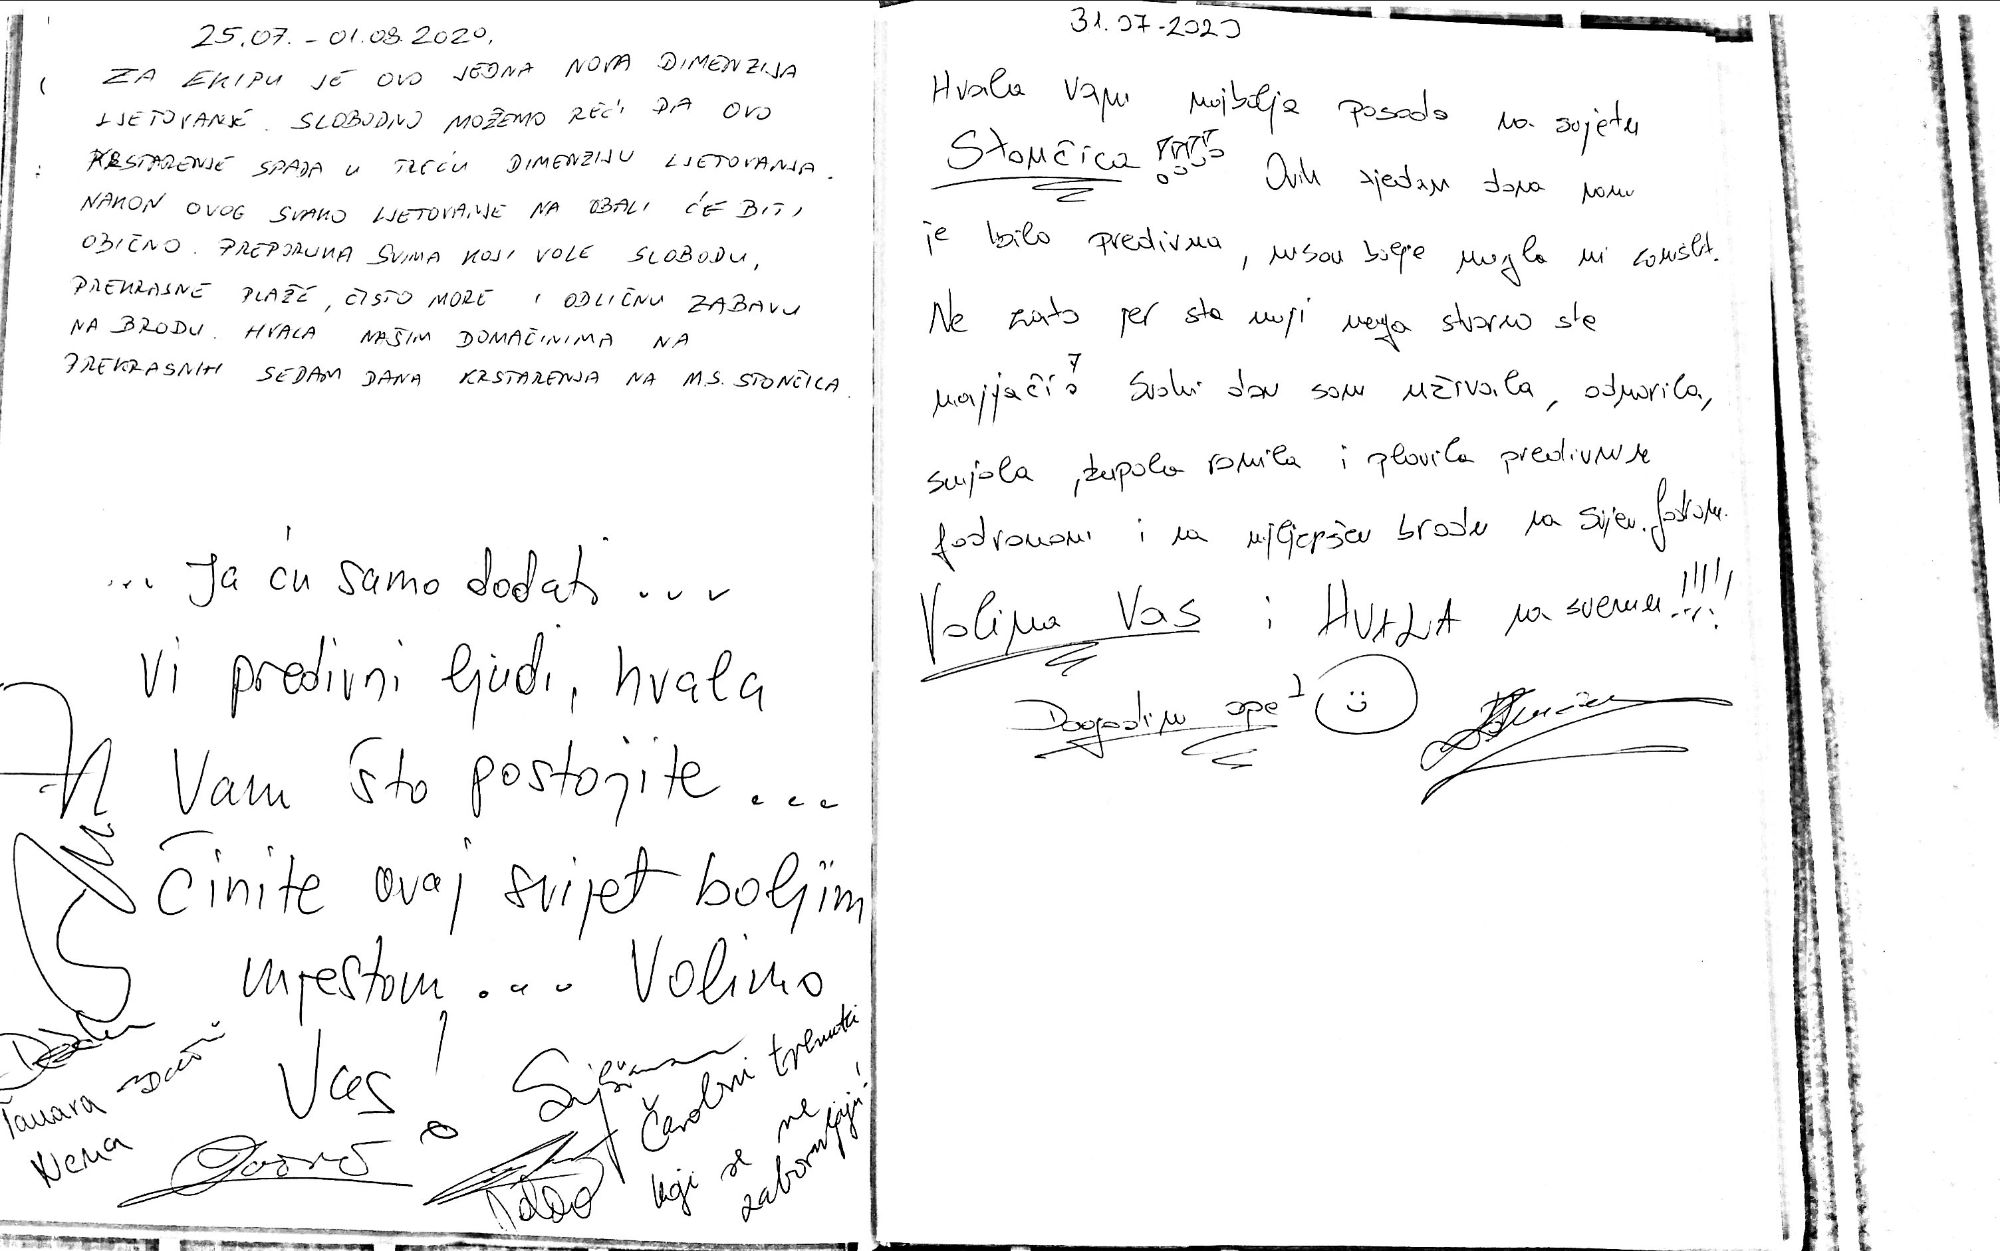 25.07. - 01.08.2020.
ZA EKIPU JE OVO JEDNA NOVA DIMENZIJA
LJETOVANJE. SLOBODNO MOŽEMO REĆI DA OVO
KRSTARENJE SPADA U TREĆU DIMENZIJU LJETOVANJA.
NAKON OVOG SVAKO LJETOVANJE NA OBALI ĆE BITI
OBIČNO. PREPORUKA SVIMA KOJI VOLE SLOBODU,
PREKRASNE PLAŽE, ČISTO MORE I ODLIČNU ZABAVU
NA BRODU. HVALA NAŠIM DOMAĆINIMA NA
PREKRASNIH SEDAM DANA KRSTARENJA NA M.S. STONČICA.
... Ja ću samo dodati ...
Vi predivni ljudi, hvala
Vam što postojite ...
Činite ovaj svijet boljim
mjestom .... Volimo
Vas!
Tamara
Nema
Čarobni trenutki
koji se ne
zaboravljaju!
31.07.2020
Hvala Vam najbolja posado na svijetu
Stončica !!!! Ovih sjedam dana
je bilo predivna, nisam bolje mogla ni zamislit.
Ne zato jer ste moji nego stvarno ste
najjači! Svaki dan sam uživala, odmorila,
smijala, župala ronila i plovila predivnim
Jadranom i na najljepšem brodu na
Volima Vas i HVALA na svemu!!!!!
Dogodim opet